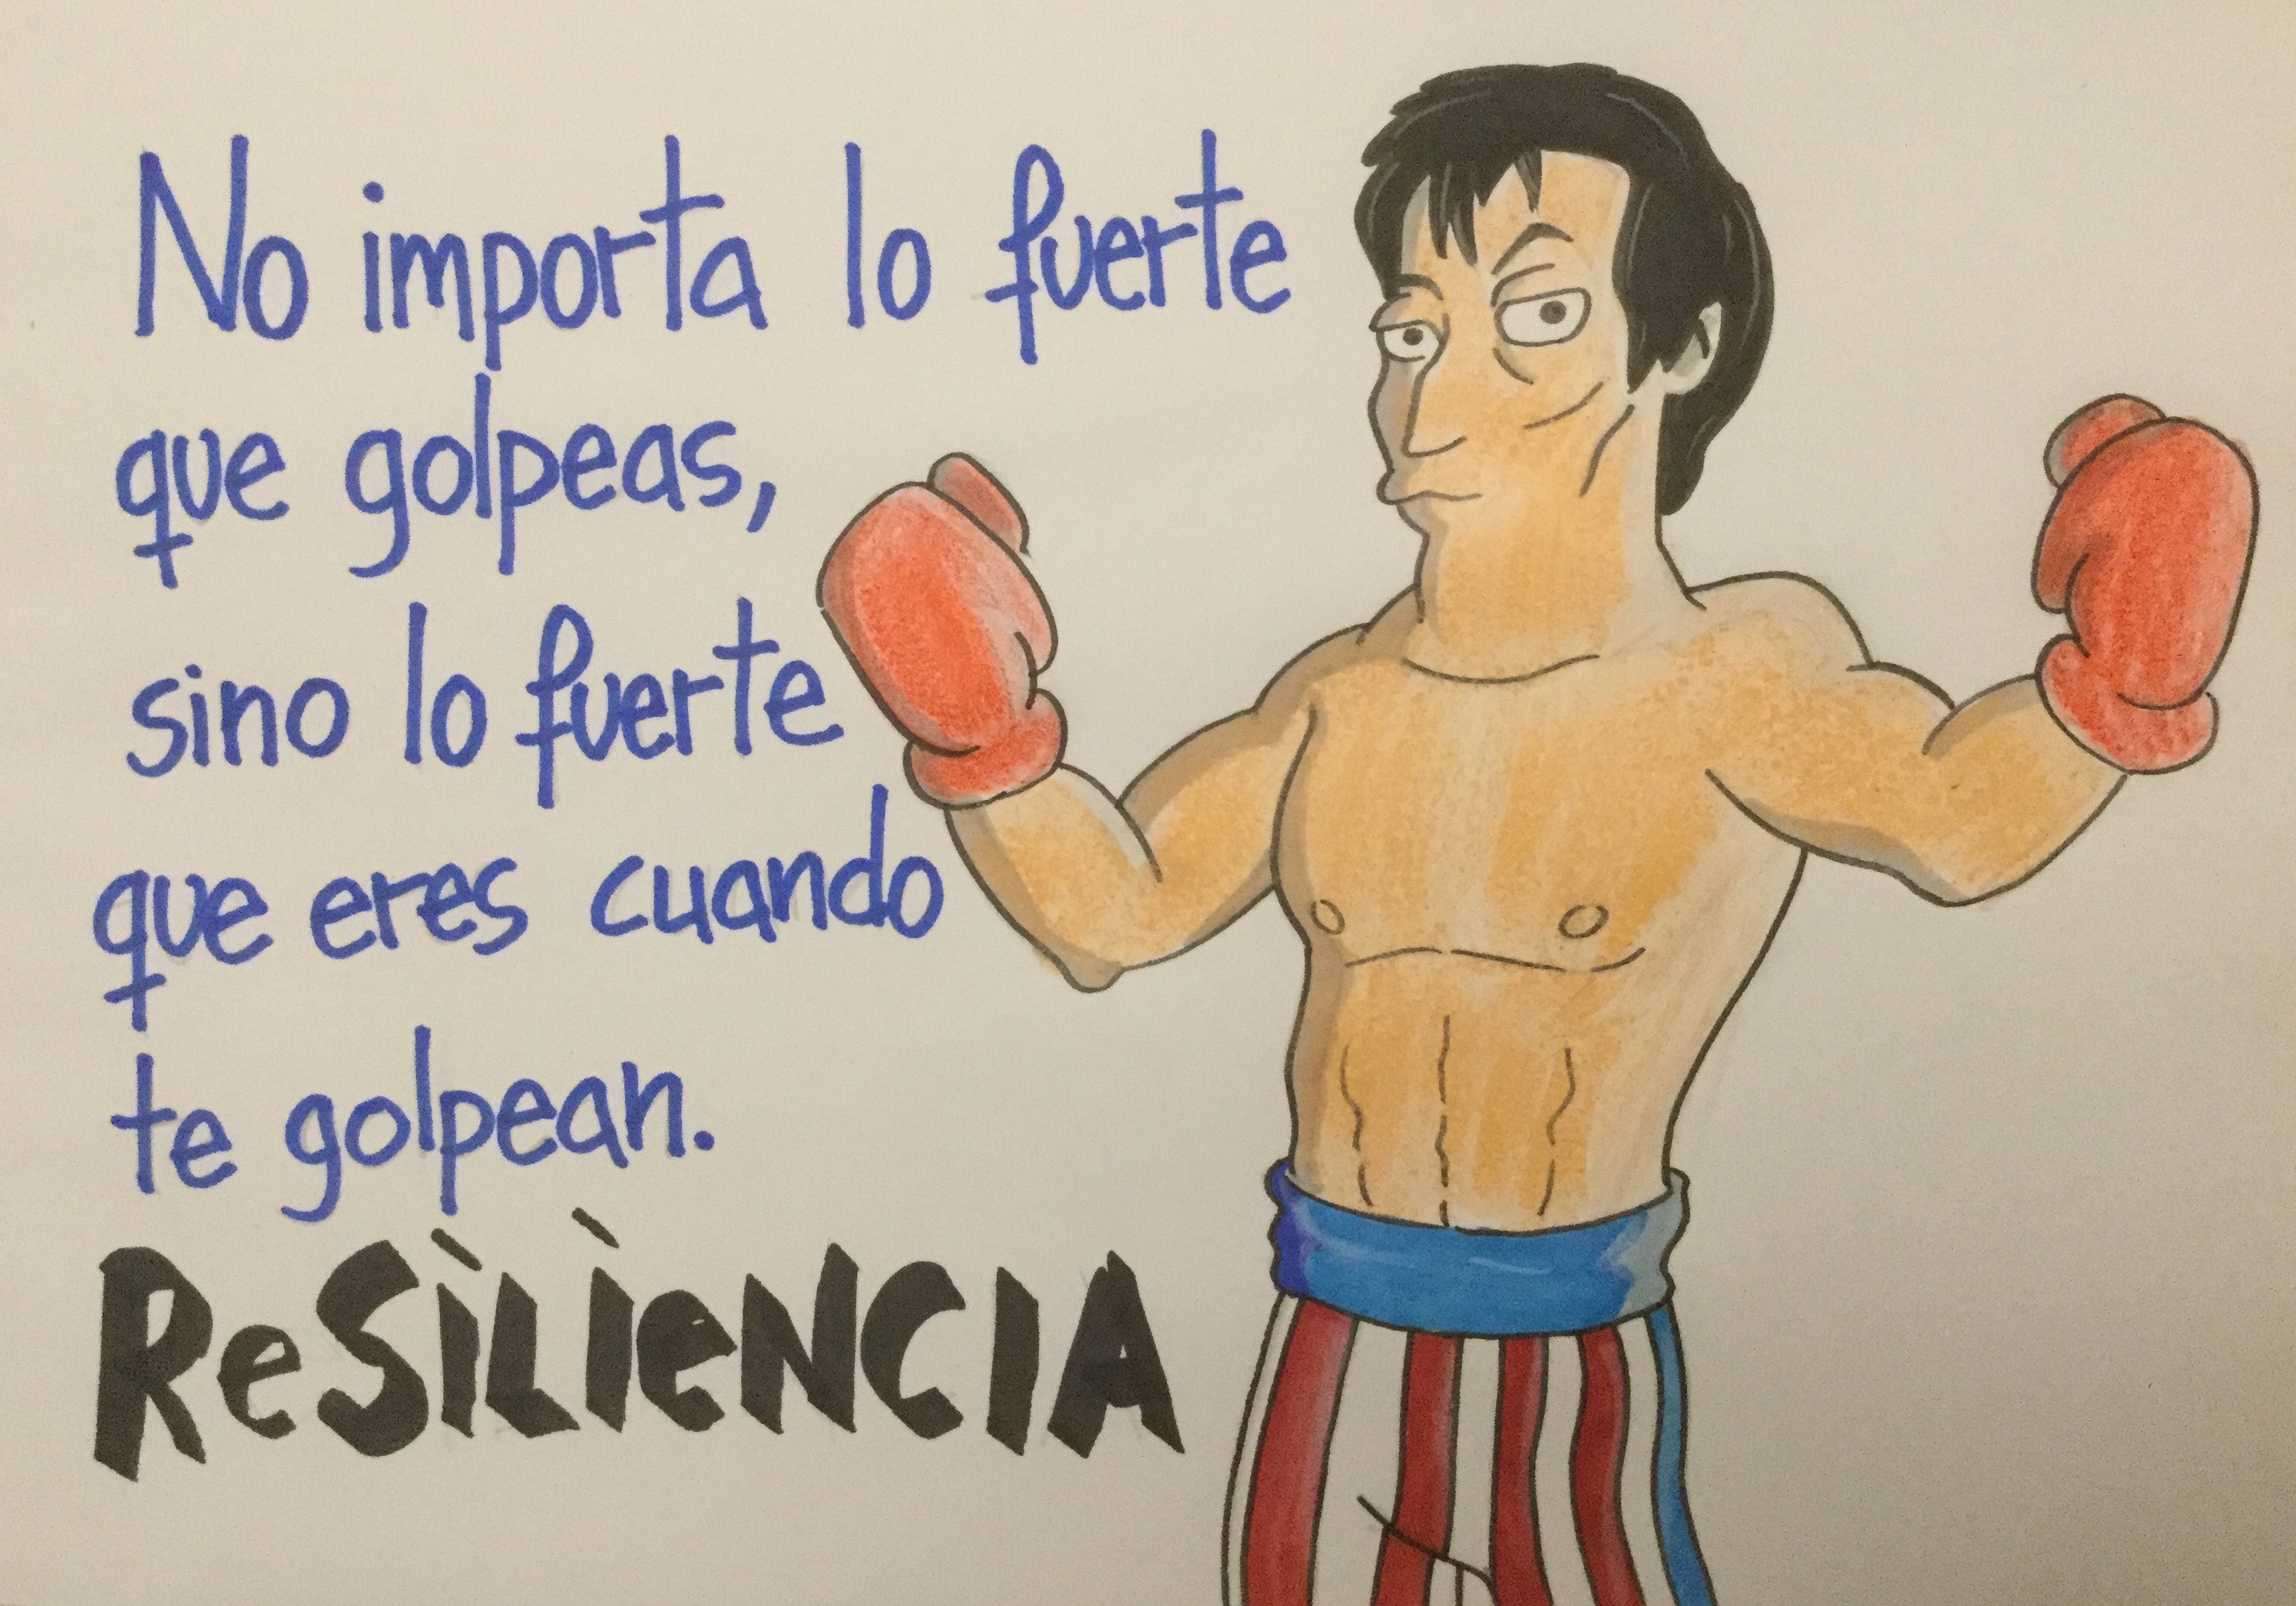 No importa lo fuerte
que golpeas,
sino lo fuerte
que eres cuando
te golpean.
ReSÌLÌeNCIA